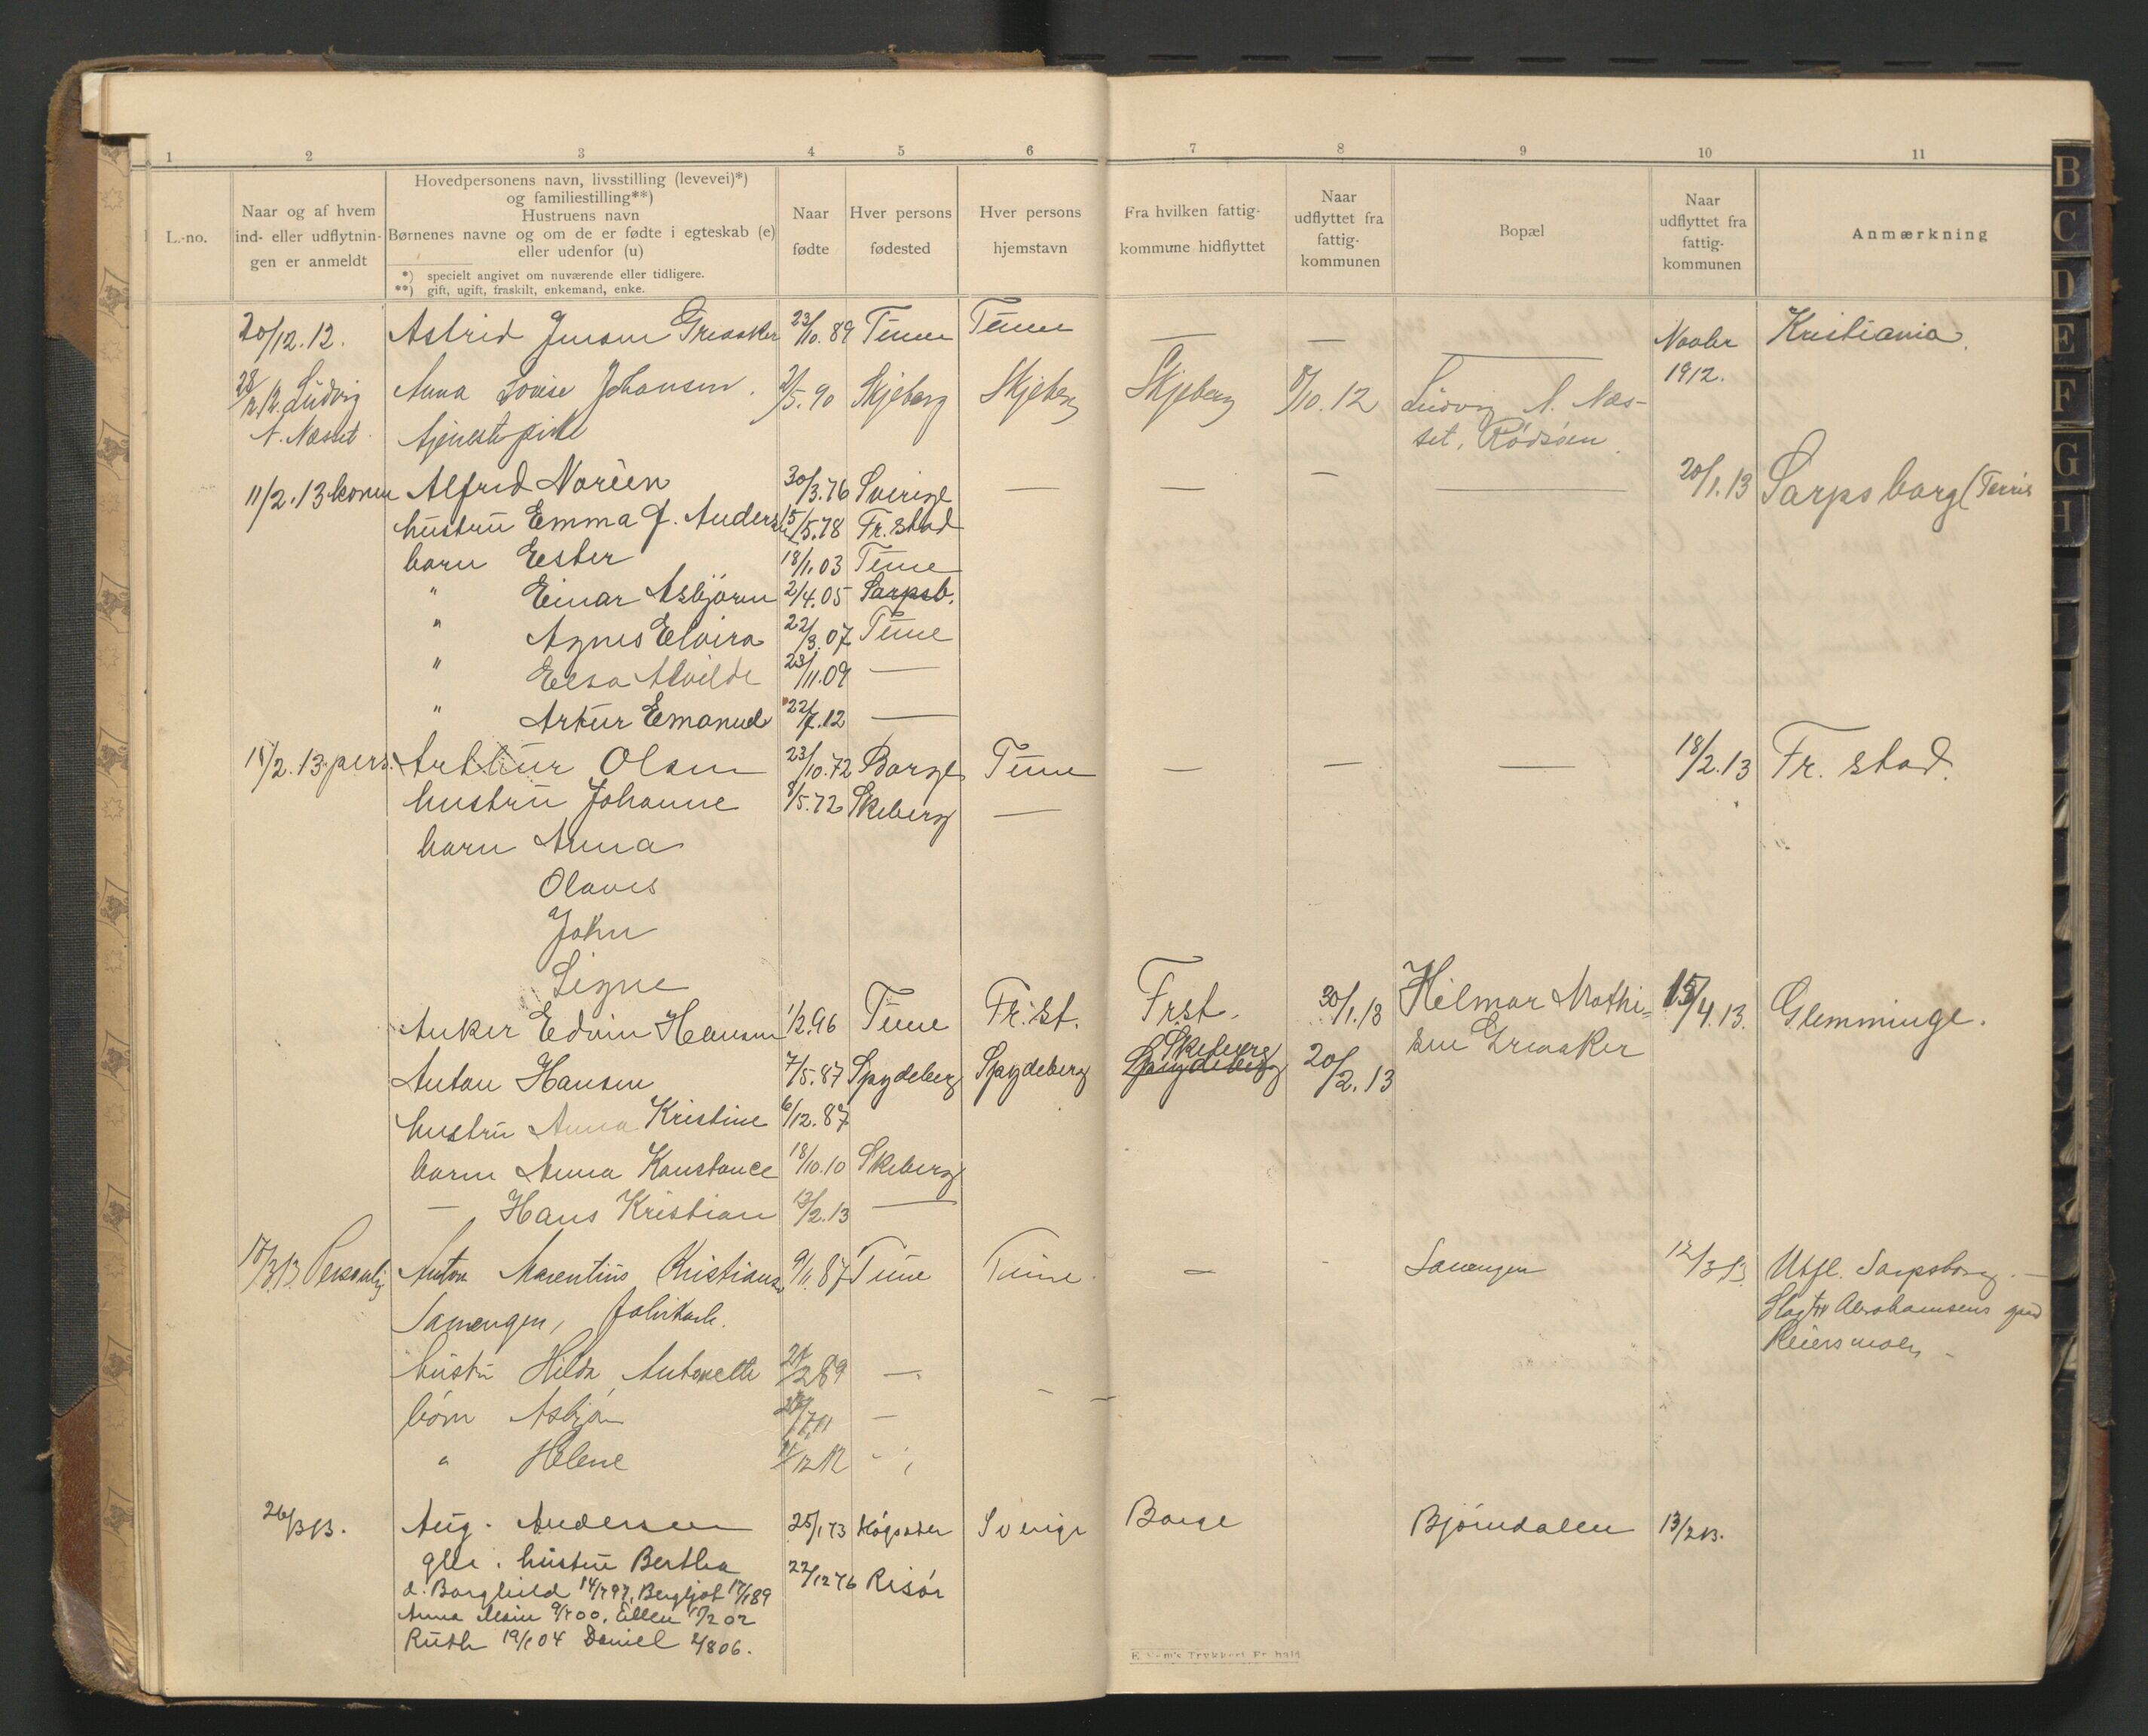 1 2 3 4 5 6 7 8 9 10 11
L.-no.
Naar og af hvem
ind- eller udflytnin-
gen er anmeldt
Hovedpersonens navn, livsstilling (levevei)*)
og familiestilling**)
Hustruens navn
Børnenes navne og om de er fødte i egteskab (e)
eller udenfor (u)
*) specielt angivet om nuværende eller tidligere.
**) gift, ugift, fraskilt, enkemand, enke.
Naar
fødte
Hver persons
fødested
Hver persons
hjemstavn
Fra hvilken fattig-
kommune hidflyttet
Naar
udflyttet fra
fattig-
kommunen
Bopæl
Naar
udflyttet fra
fattig-
kommunen
Anmærkning
20/12.12. Astrid Jensen Greaaker 23/10.89 Tune Tune — — — Novbr Kristiania
1912.
28/12.12. Ludvig Anna Lovise Johansen. 2/5.90 Skjeberg Skjeberg Skjeberg 8/10.12 Ludvig N. Næs-
N. Næsset. tjenestepike set, Rødsøen
11/2.13 konen Alfred Noréen 30/3.76 Sverige — — — — 20/1.13 Sarpsborg
hustru Emma J. Andersen 15/5.78 Fr.stad
barn Ester 18/1.03 Tune
" Einar Asbjørn 2/4.05 Sarpsb.
" Agnes Elvira 22/3.07 Tune
" Elsa Alvilde 23/11.09 —
" Artur Emanuel 22/7.12 —
18/2.13 pers. Arthur Olsen 23/10.72 Borge Tune — — — 18/2.13 Fr. stad.
hustru Johanne 8/5.72 Skeberg —
barn Anna
Olaves
John
Signe
Anker Edvin Hansen 1/2.96 Tune Fr.st. Frst. 30/1.13 Hilmar Mathi= 15/4.13. Glemminge.
sen Greaaker
Skeberg
Anton Hansen 7/5.87 Spydeberg Spydeberg Spydeberg 20/2.13
hustru Anna Kristine 6/12.87
barn Anna Konstance 18/10.10 Skeberg
— Hans Kristian 13/2.13 —
Personlig Anton Marentius Kristians. 9/11.87 Tune Tune. — 12/3.13 Utfl. Sarpsborg. —
Abrahamsens
hustru Hilda Antonette —
børn Asbjø —
" Helene 12.12
26/3 13. Aug. Andersen 25/1 73 Sverige Borge Bjørndalen 13/2 13.
hustru Bertha 22/12 76 Risør
d. Borghild 14/7 97, Bergljot
Anna 00, Ellen 02
Ruth 19/1 04 Daniel 2/8 06.
E. Trykkeri, Fr.hald
B
C
D
E
F
G
H